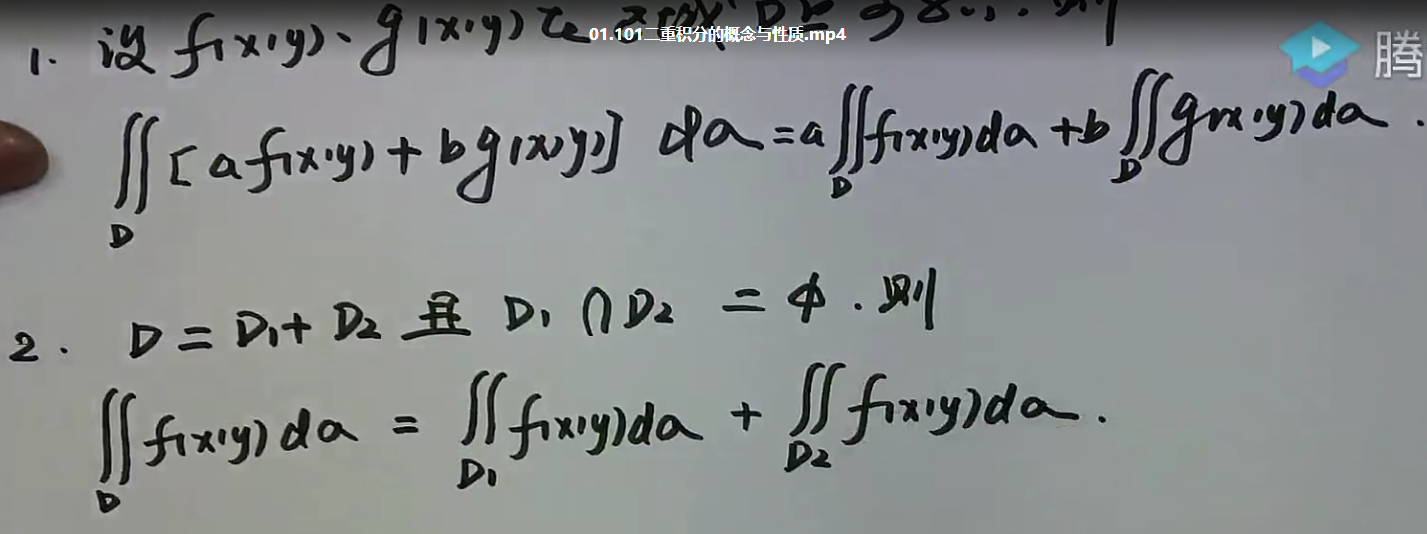 01.101二重积分的概念与性质.mp4
腾
1. 设 f(x,y)、g(x,y)在
∬_D [a f(x,y) + b g(x,y)] dσ = a∬_D f(x,y)dσ + b∬_D g(x,y)dσ.
2. D = D₁ + D₂ 且 D₁ ∩ D₂ = ϕ. 则
∬_D f(x,y)dσ = ∬_D₁ f(x,y)dσ + ∬_D₂ f(x,y)dσ.